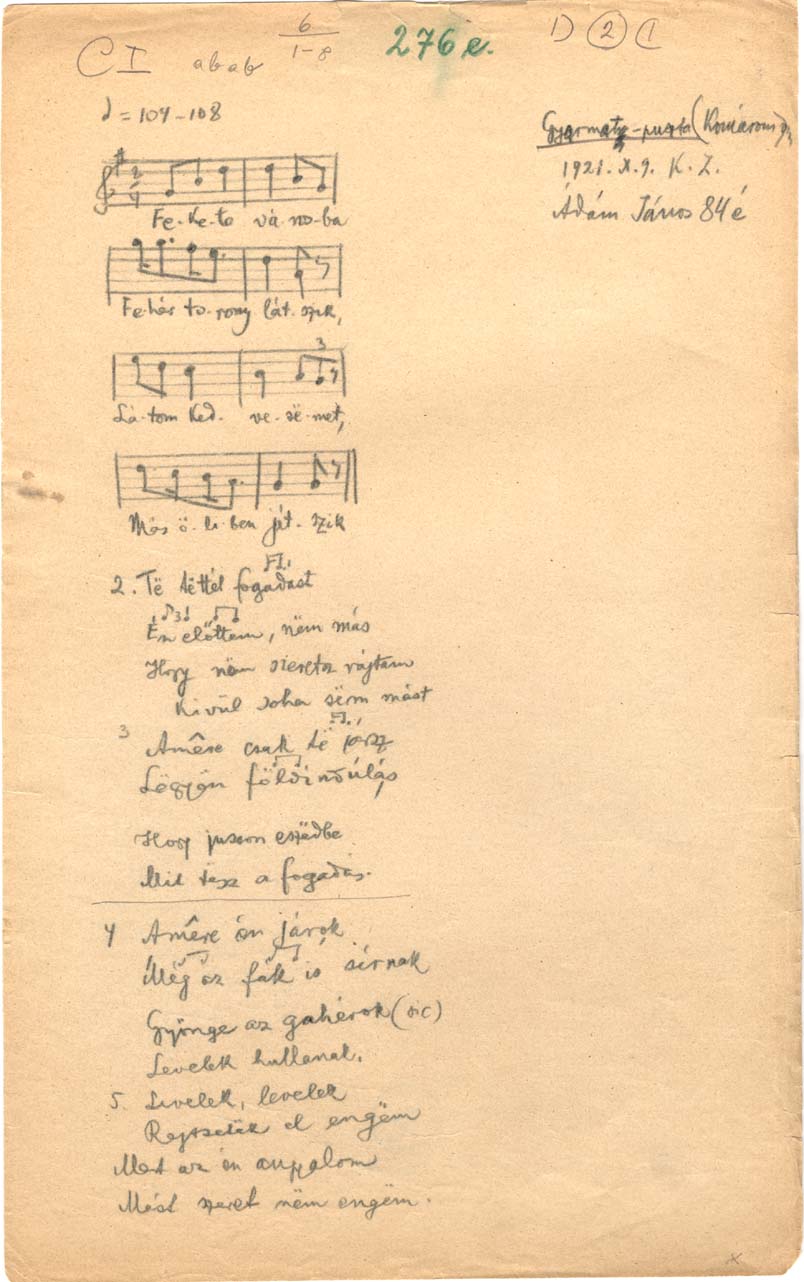 CI abab 6/1-8 276e. 1) 2 (1
♩ = 104-108
Gyarmat-puszta (Komárom)
1921. X. 9. K. Z.
Ádám János 84 é
Fe-ke-te vá-ro-ba
Fe-hér to-rony lát-szik,
Lá-tom ked-ve-së-met,
Más ö-li-ben ját-szik
2. Të tëttél fogadást
Én előttem, nëm más
Hogy nëm szeretsz rajtam
Kivül soha sëm mást
3 Amêre csak të jársz
Lëgyön földindúlás
Hogy jusson eszëdbe
Mit tësz a fogadás.
4 Amêre én járok
Még az fák is sírnak
Gyönge az gahérok (sic)
Levelek hullanak.
5. Levelek, levelek
Rejtsetëk el engëm
Mert az én
Mást szeret nëm engëm.
x